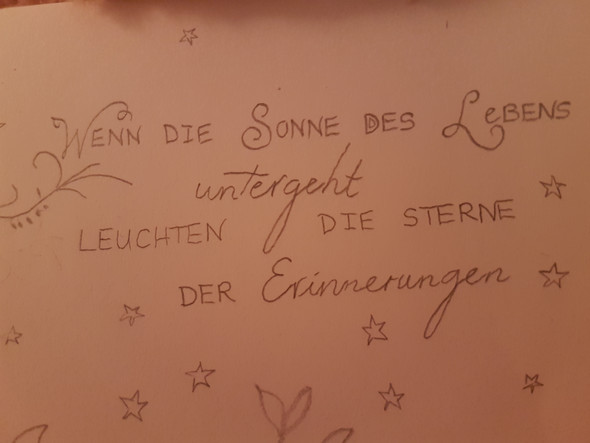 WENN DIE SONNE DES LeBENS
untergeht
LEUCHTEN DIE STERNE
DER Erinnerungen